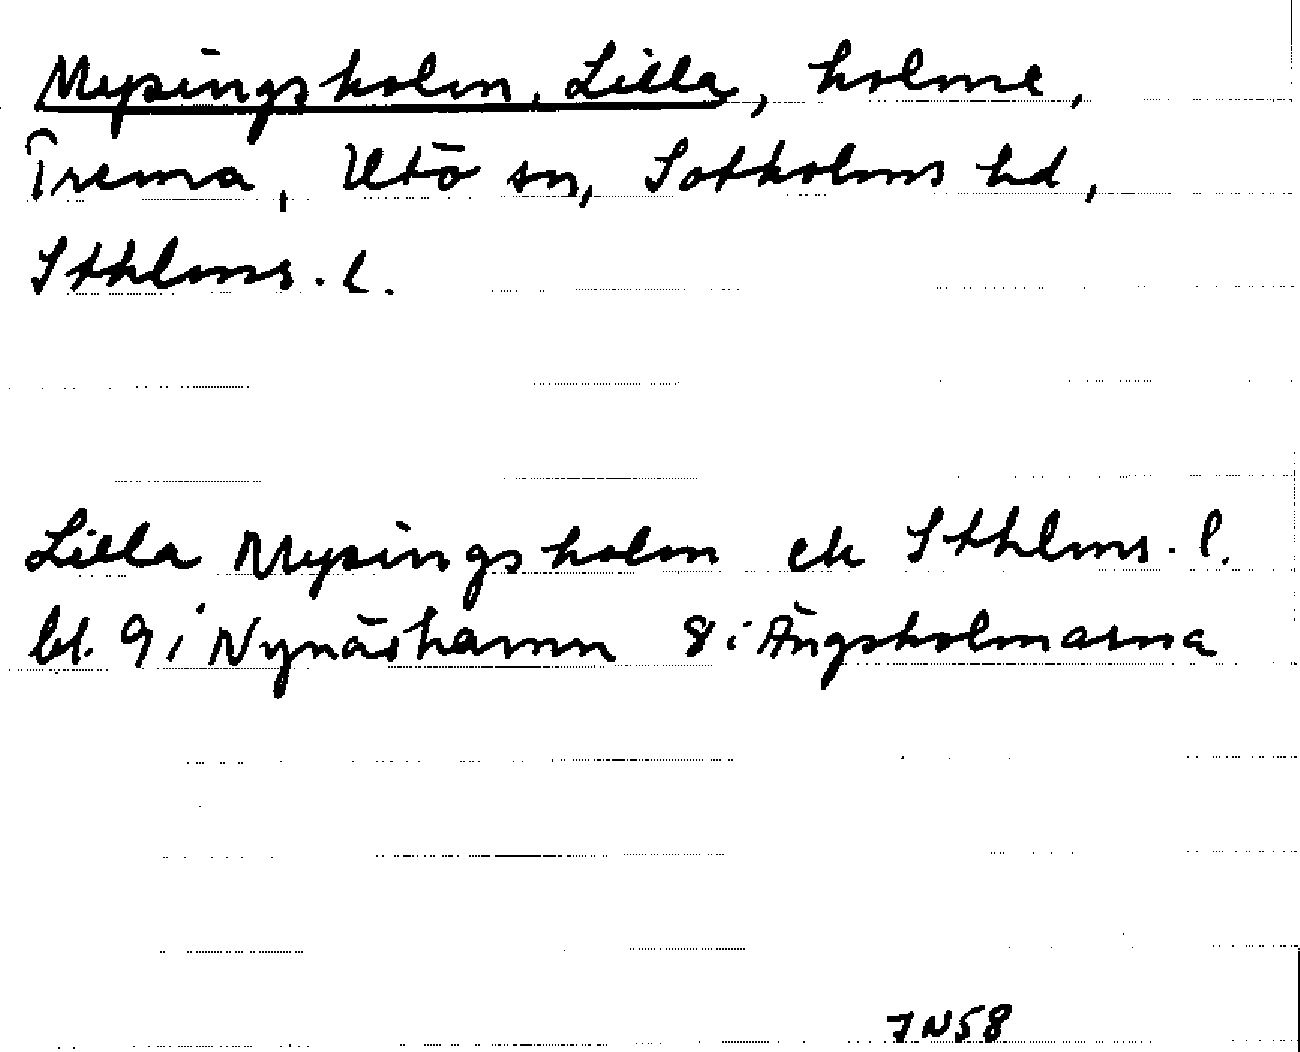 Mysingsholm, Lilla, holme,
Trema, Utö sn, Sotholms hd,
Sthlms. l.
Lilla Mysingsholm ek Sthlms. l.
bl. 9 i Nynäshamn 8 i Ängsholmarna
7N58